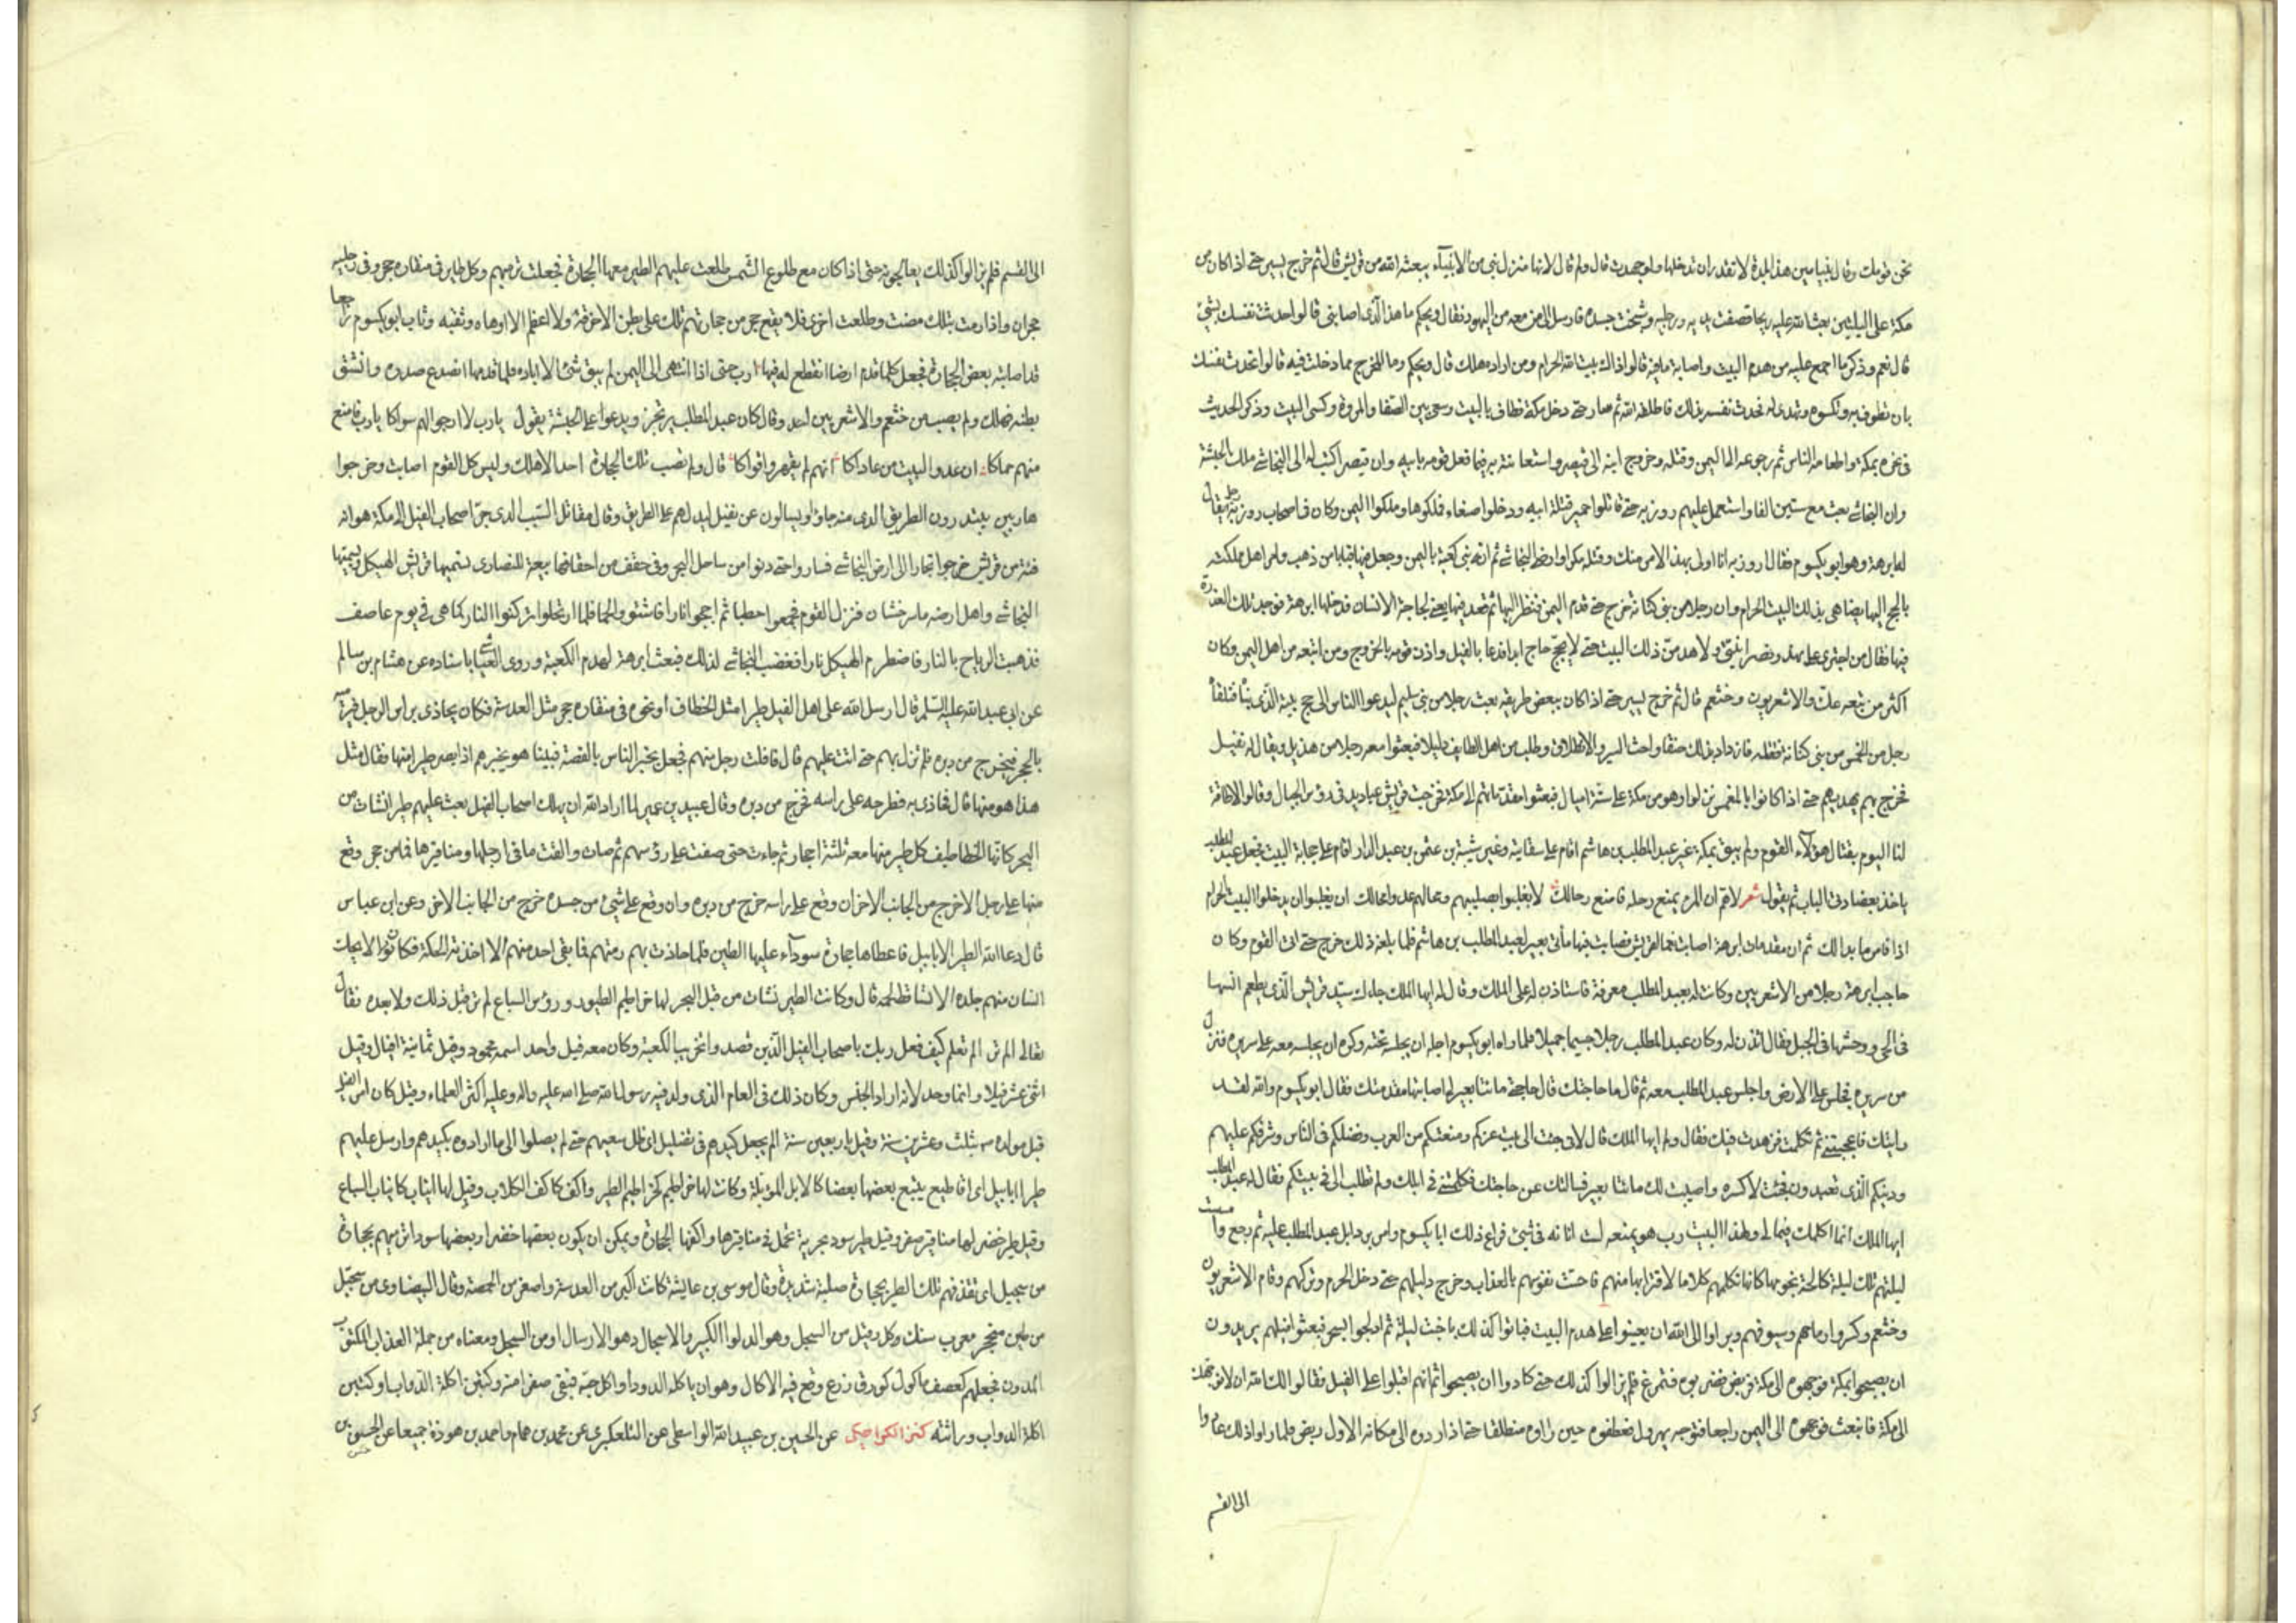 نحن قومك وقال نبيا مين هذا البلدة لا تقدران تدخلها ولو جهدت قال ولم قال لانها منزل نبي من الانبيآء يبعثه الله من قريش قال ثم خرج يسير حتى اذا كان من
مكة على اليلتين بعث الله عليه ريحا قصفت يديه ورجليه وشنجت جسده فارسل الى من معه من اليهود فقال ويحكم ما هذا الذى اصابنى قالوا حدثت نفسك بشئ
قال نعم وذكر ما اجمع عليه من هدم البيت واصابة ما فيه قالوا ذاك بيت الله الحرام ومن اراده هلك قال ويحكم وما المخرج مما دخلت فيه قالوا تحدث نفسك
بان تطوف به وتكسوه وتهدى له فحدث نفسه بذلك فاطلقه الله ثم سار حتى دخل مكة فطاف بالبيت وسعى بين الصفا والمروة وكسى البيت وذكر الحديث
فى نحره بمكة واطعامه الناس ثم رجوعه الى اليمن وقتله وخروج ابنه الى قيصر واستعانته به فيما فعل قومه بابيه وان قيصر اكتب له الى النجاشى ملك الحبشة
وان النجاشى بعث معه ستين الفا واستعمل عليهم روزبه حتى قاتلوا حمير قتلة ابيه ودخلوا صنعاء فملكوها وملكوا اليمن وكان فى اصحاب روزبه رجل يقال
له ابرهة وهو ابو يكسوم فقال لروزبه انا اولى بهذا الامر منك وقتله مكرا وارضى النجاشى ثم انه بنى كعبة باليمن وجعل فيها قبابا من ذهب وامر اهل مملكته
بالحج اليها يضاهى بذلك البيت الحرام وان رجلا من بنى كنانة خرج حتى قدم اليمن فنظر اليها ثم قعد فيها يعنى لحاجة الانسان فدخلها ابرهة فوجد تلك العذرة
فيها فقال من اجترى على بهذا ونصرانيتى لاهدمن ذلك البيت حتى لا يحجه حاج ابدا فدعا بالفيل واذن قومه بالخروج ومن اتبعه من اهل اليمن وكان
اكثر من تبعه عك والاشعريون وخثعم قال ثم خرج يسير حتى اذا كان ببعض طريقه بعث رجلا من بنى سليم ليدعوا الناس الى حج بيته الذى بناه فتلقاه
رجل من الحمس من بنى كنانة فقتله فازداد بذلك حنقا واحث السير والانطلاق وطلب من اهل الطايف دليلا فبعثوا معه رجلا من هذيل يقال له نفيل
فخرج بهم يهديهم حتى اذا كانوا بالمغمس نزلوا وهو من مكة على ستة اميال فبعثوا مقدماتهم الى مكة فخرجت قريش عباديد فى رؤس الجبال وقالوا لا طاقة
لنا اليوم بقتال هؤلآء القوم ولم يبق بمكة غير عبد المطلب بن هاشم اقام على سقايته وغير شيبة بن عثمن بن عبد الدار اقام على حجابة البيت فجعل عبد المطلب
ياخذ بعضادتى الباب ثم يقول شعر لاهم ان المرء يمنع رحله فامنع رحالك لا يغلبوا بصليبهم ومحالهم عدوا محالك ان يغلبوا ان يدخلوا البيت الحرام
اذا فامر ما بدا لك ثم ان مقدمات ابرهة اصابت نعما لقريش فصابت فيها مأتى بعير لعبد المطلب بن هاشم فلما بلغه ذلك خرج حتى اتى القوم وكان
حاجب ابرهة رجلا من الاشعريين وكانت له بعبد المطلب معرفة فاستاذن له على الملك وقال له ايها الملك جاءك سيد قريش الذى يطعم انسها
فى الحى ووحشها فى الجبل فقال ائذن له وكان عبد المطلب رجلا جسيما جميلا فلما راه ابو يكسوم اجله ان يجلسه تحته وكره ان يجلسه معه على سريره فنزل
من سريره فجلس على الارض واجلس عبد المطلب معه ثم قال ما حاجتك قال حاجتى مائتا بعير لى اصابتها مقدمتك فقال ابو يكسوم والله لقد
رايتك فاعجبتنى ثم تكلمت فزهدت فيك فقال ولم ايها الملك قال لانى جئت الى بيت عزكم ومنعتكم من العرب وفضلكم فى الناس وشرفكم عليهم
ودينكم الذى تعبدون فجئت لاكسره واصيبت لك مائتا بعير فسالتك عن حاجتك فكلمتنى فى ابلك ولم تطلب الى فى بيتكم فقال له عبد المطلب
ايها الملك انما اكلمك فيما لى ولهذا البيت رب هو يمنعه لست انا منه فى شئ فراع ذلك ابا يكسوم وامر برد ابل عبد المطلب عليه ثم رجع وامست
ليلتهم تلك ليلة كالحة نجومها كانها تكلمهم كلاما لاقترابها منهم فاحست نفوسهم بالعذاب وخرج دليلهم حتى دخل الحرم وتركهم وقام الاشعريون
وخثعم وكسروا رماحهم وسيوفهم وبراوا الى الله ان يعينوا على هدم البيت فباتوا كذلك باخبث ليلة ثم ادلجوا بسحر فبعثوا فيلهم يريدون
ان يصبحوا بمكة فوجهوه الى مكة فربض فضربوه فتمرغ فلم يزالوا كذلك حتى كادوا ان يصبحوا ثم انهم اقبلوا على الفيل فقالوا لك الله ان لا نوجهك
الى مكة فانبعث فوجهوه الى اليمن راجعا فتوجه يهرول فعطفوه حين راوه منطلقا حتى اذا ردوه الى مكانه الاول ربض فلما راوا ذلك عادوا
الى القسم
الى القسم فلم يزالوا كذلك يعالجونه حتى اذا كان مع طلوع الشمس طلعت عليهم الطير معها الحجارة فجعلت ترميهم وكل طاير فى منقاره حجر وفى رجليه
حجران واذا رمت بتلك مضت وطلعت اخرى فلا يقع حجر من حجارتهم تلك على بطن الا خرقه ولا عظم الا اوهاه وثقبه وثاب ابو يكسوم راجعا
قد اصابته بعض الحجارة فجعل كلما قدم ارضا انقطع له فيها ارب حتى اذا انتهى الى اليمن لم يبق شئ الا باده فلما قدمها انصدع صدره وانشق
بطنه فهلك ولم يصب من خثعم والاشعريين احد وقال كان عبد المطلب يرتجز ويدعوا على الحبشة يقول يا رب لا ارجوا لهم سواكا يا رب فامنع
منهم حماكا ان عدو البيت من عاداكا انهم لم يقهروا قواكا قال ولم تصب تلك الحجارة احدا الا هلك وليس كل القوم اصابت وخرجوا
هاربين يبتدرون الطريق الذى منه جاؤا ويسالون عن نفيل ليدلهم على الطريق وقال مقاتل السبب الذى جر اصحاب الفيل الى مكة هو انه
فتية من قريش خرجوا تجارا الى ارض النجاشى فساروا حتى دنوا من ساحل البحر وفى حقف من احقافها بيعة للنصارى تسميها قريش الهيكل ويسميها
النجاشى واهل ارضه ماسرخشان فنزل القوم فجمعوا حطبا ثم اججوا نارا فاشتووا لحما فلما ارتحلوا تركوا النار كما هى فى يوم عاصف
فذهبت الرياح بالنار فاضطرم الهيكل نارا فغضب النجاشى لذلك فبعث ابرهة لهدم الكعبة وروى العياشى باسناده عن هشام بن سالم
عن ابى عبد الله عليه السلم قال ارسل الله على اهل الفيل طيرا مثل الخطاف او نحوه فى منقاره حجر مثل العدسة فكان يحاذى براس الرجل فيرميه
بالحجر فيخرج من دبره فلم تزل بهم حتى اتت عليهم قال فافلت رجل منهم فجعل يخبر الناس بالقصة فبينا هو يخبرهم اذا بصر طيرا منها فقال مثل
هذا هو منها قال فحاذى به فطرحه على راسه فخرج من دبره وقال عبيد بن عمير لما اراد الله ان يهلك اصحاب الفيل بعث عليهم طيرا نشات من
البحر كانها الخطاطيف كل طير منها معه ثلثة احجار ثم جاءت حتى صفت على رؤسهم ثم صات والقت ما فى ارجلها ومناقيرها فما من حجر وقع
منها على رجل الا خرج من الجانب الاخر ان وقع على راسه خرج من دبره وان وقع على شئ من جسده خرج من الجانب الاخر وعن ابن عباس
قال دعا الله الطير الابابيل فاعطاها حجارة سودآء عليها الطين فلما حاذت بهم رمتهم فما بقى احد منهم الا اخذته الحكة فكانوا لا يحك
انسان منهم جلده الا تساقط لحمه قال وكانت الطير نشات من قبل البحر لها خراطيم الطيور ورؤس السباع لم تر قبل ذلك ولا بعده فقال
تعالى الم تر الم تعلم كيف فعل ربك باصحاب الفيل الذين قصدوا تخريب الكعبة وكان معه فيل واحد اسمه محمود وقيل ثمانية افيال وقيل
اثنى عشر فيلا وانما وحد لانه اراد الجنس وكان ذلك فى العام الذى ولد فيه رسول الله صلى الله عليه واله وعليه اكثر العلماء وقيل كان امر الفيل
قبل مولده بثلث وعشرين سنة وقيل باربعين سنة الم يجعل كيدهم فى تضليل اى ضلل سعيهم حتى لم يصلوا الى ما ارادوه بكيدهم وارسل عليهم
طيرا ابابيل اى اقاطيع يتبع بعضها بعضا كالابل المؤبلة وكانت لها خراطيم كخراطيم الطير واكف كاكف الكلاب وقيل لها انياب كانياب السباع
وقيل طير خضر لها مناقير صفر وقيل طير سود بحرية تحمل فى مناقيرها واكفها الحجارة ويمكن ان يكون بعضها خضرا وبعضها سودا ترميهم بحجارة
من سجيل اى تقذفهم تلك الطير بحجارة صلبة شديدة وقال موسى بن عايشة كانت اكبر من العدسة واصغر من الحمصة وقال البيضاوى من سجيل
من طين متحجر معرب سنك وكل وقيل من السجل وهو الدلو الكبير او الاسجال وهو الارسال او من السجل ومعناه من جملة العذاب المكتوب
المدون فجعلهم كعصف ماكول كورق زرع وقع فيه الاكال وهو ان ياكله الدود او اكل حبه فبقى صفرا منه وكتبن اكلته الدواب او كتبن
اكلته الدواب وراثته كنز الكراجكى عن الحسين بن عبيد الله الواسطى عن التلعكبرى عن محمد بن همام واحمد بن هوذة جميعا عن الحسن بن